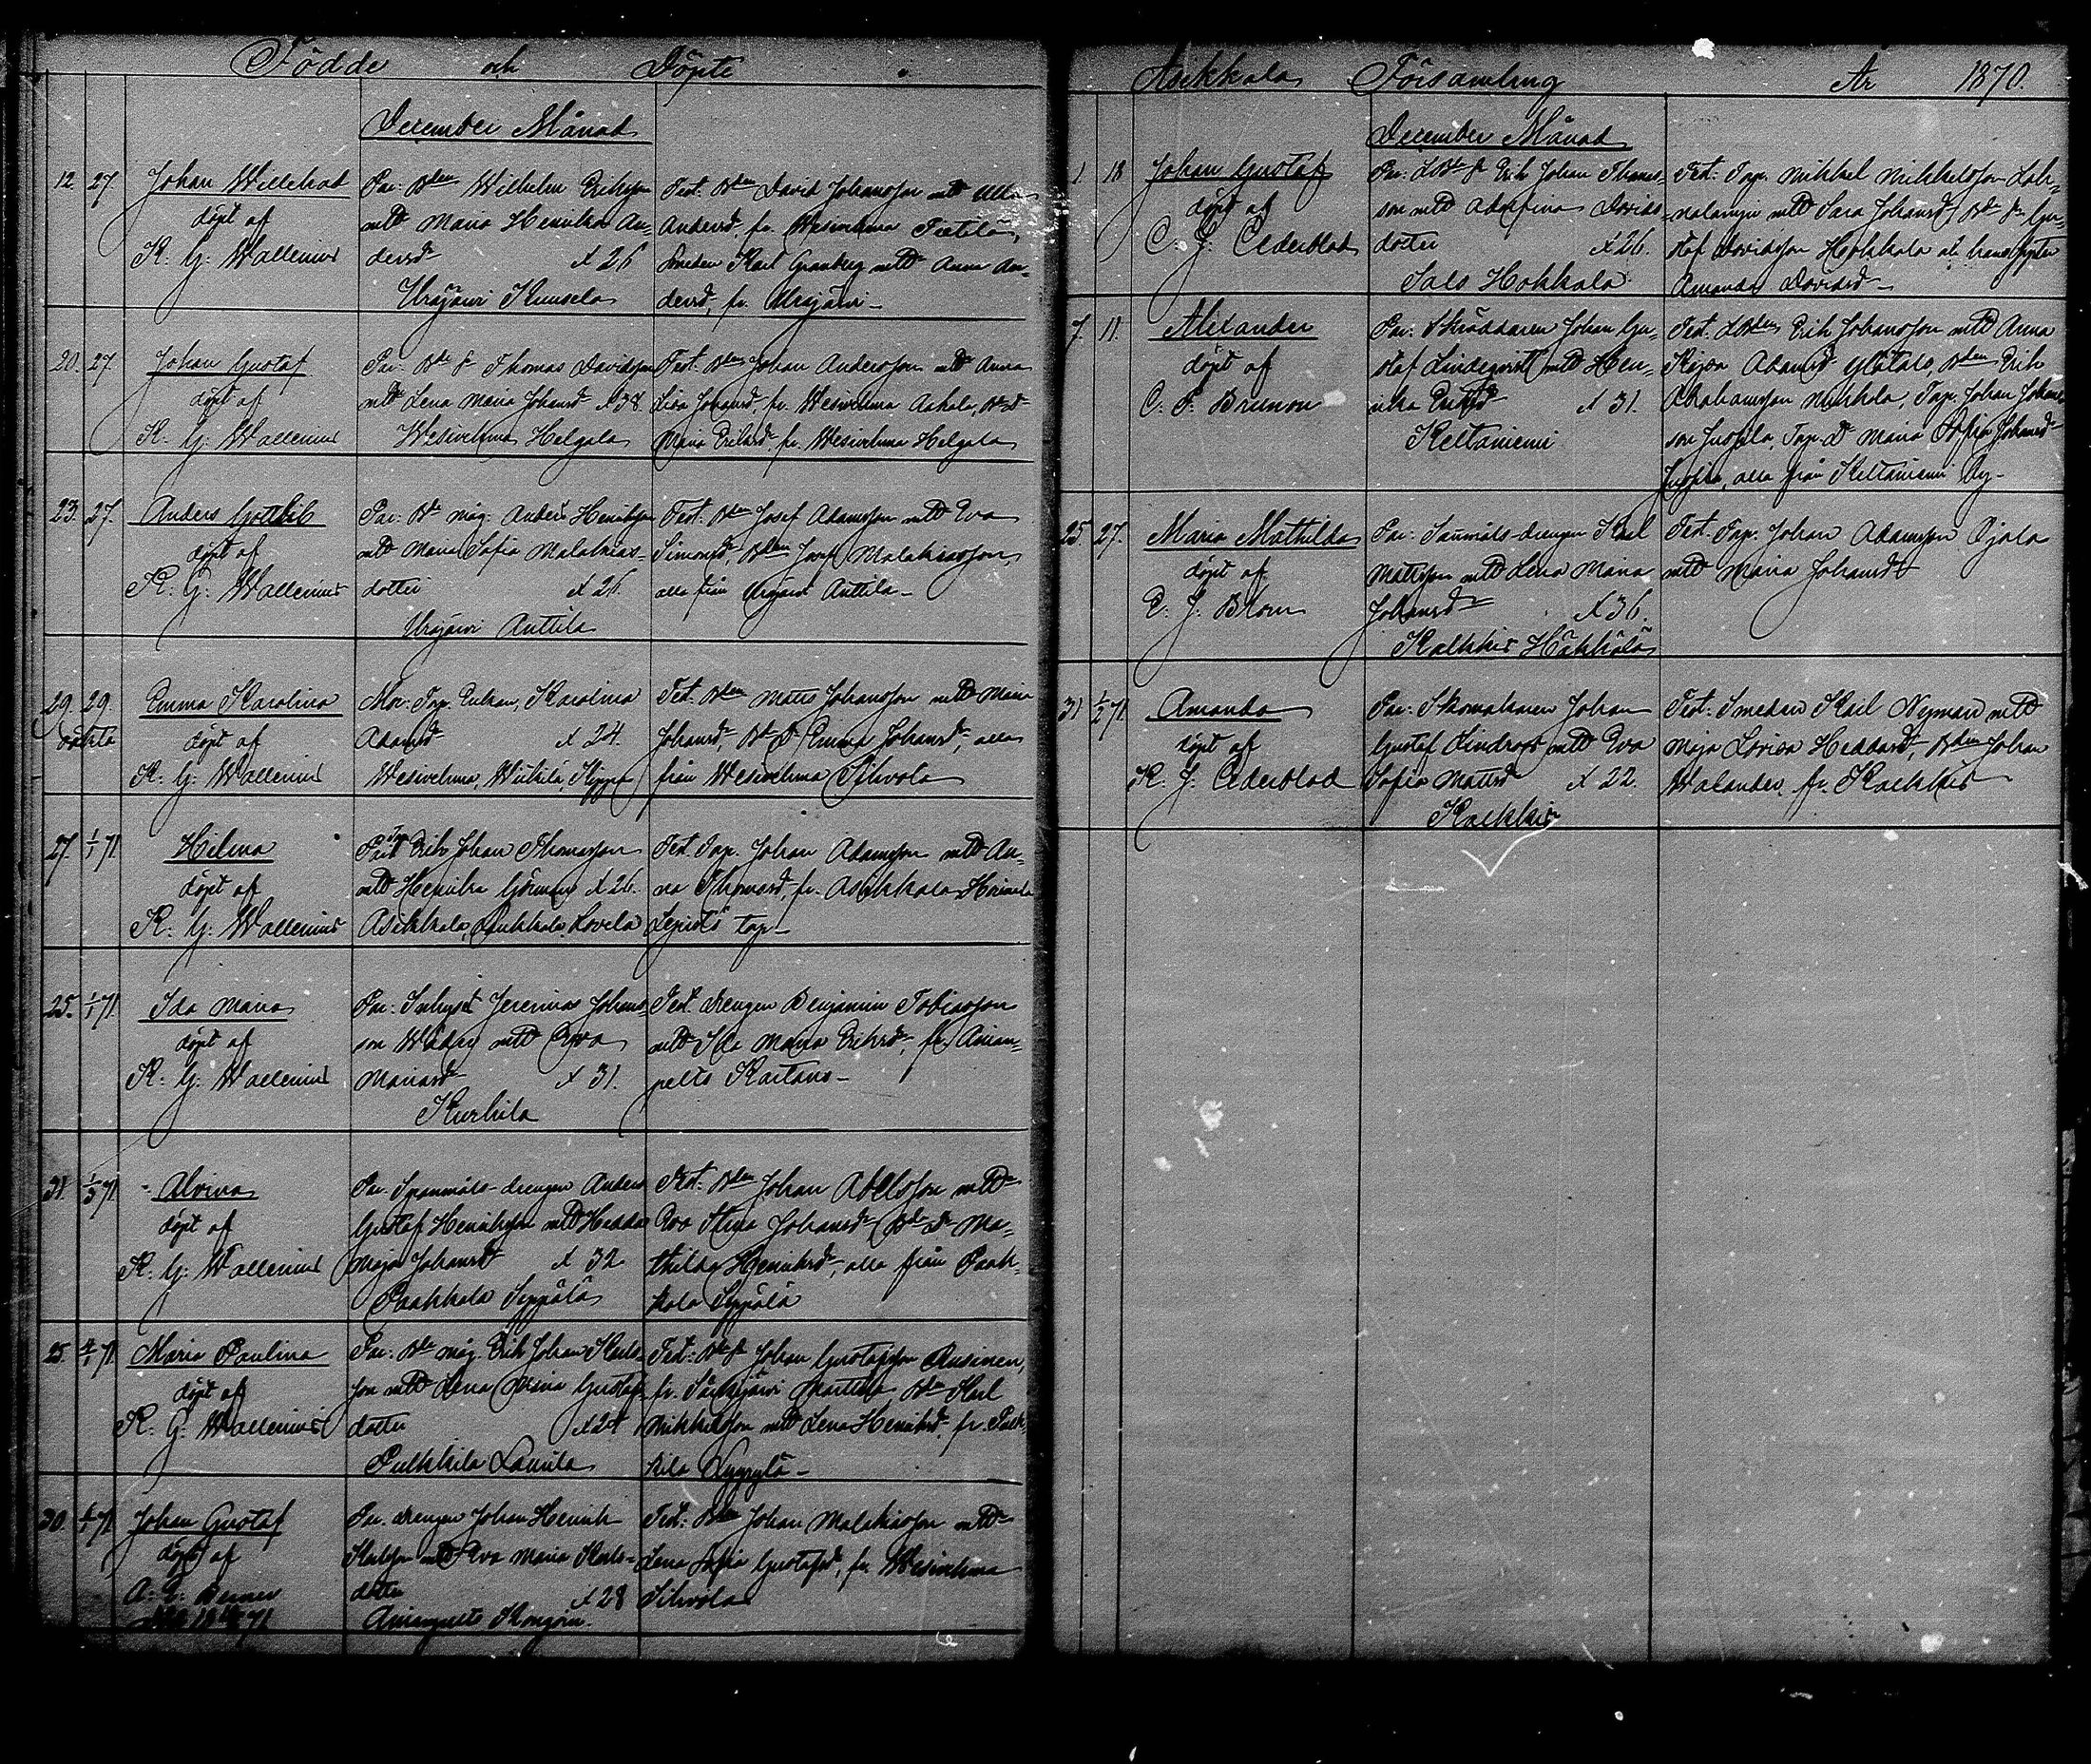 Födde och Döpte
December Månad
12. 27. Johan Willehad
döpt af
K. G. Wallenius
Par: Bden Wilhelm Eriksson
mtd Maria Henrika An-
dersdr X 26
Urajärvi Kunsela
Test. Bden David Johansson mtd Ulla
Andersd. fr. Wesivehma Tietilä,
Smeden Karl Granberg mtd Anna An-
dersd. fr. Urajärvi
20. 27. Johan Gustaf
döpt af
K. G. Wallenius
Par: Bde s. Thomas Davidsson
mtd Lena Maria Johansd X 38.
Wesivehma Helgala
Test. Bden Johan Andersson mtd Anna
Lisa Johansd, fr. Wesivehma Askala, Bde dr
Maria Eriksd. fr. Wesivehma Helgala
23. 27. Anders Gottlib
döpt af
K. G. Wallenius
Par: Bde måg. Anders Henriksson
mtd Maria Sofia Malakias-
dotter X 26.
Urajärvi Anttila
Test. Bden Josef Adamsson mtd Eva
Simonsd, Bden Josef Malakiasson,
alla från Urajärvi Anttila
29. 29. Emma Karolina
oäkta döpt af
K. G. Wallenius
Mor: Tap. Enkan, Karolina
Adamsdr X 24.
Wesivehma,
Test. Bden Matts Johansson mtd Maria
Johansd, Bde dr Emma Johansd, alla
från Wesivehma Sihvola
27. 1/1 71 Hilma
döpt af
K. G. Wallenius
Par: Tap Erik Johan Thomasson
mtd Henrika X 26.
Asikkala,
Test. Tap. Johan Adamsson mtd An-
na Thomasd, fr. Asikkala
Lepistö tap
25. 1/1 71. Ida Maria
döpt af
K. G. Wallenius
Par: Inhyses Jeremias Johans-
son mtd Eva
Mariasd X 31.
Kurhila
Test. drengen Benjamin Tobiasson
mtd Ida Maria Eriksdr, fr. Anian-
pelto Kaitans
31. 1/3 71 Alvina
döpt af
K. G. Wallenius
Par. Spanmåls-drengen Anders
Gustaf Henriksson mtd Hedda
Maja Johansd X 32
Paakkola Seppälä
Test. Bden Johan Abelsson mtd
Eva Stina Johansdr, Bde dr Ma-
thilda Henriksdr, alla från Paak-
kola Seppälä
25. 71. Maria Paulina
döpt af
K. G. Wallenius
Par: Bde måg. Erik Johan Karls-
son mtd Lena Maria Gustafs-
dotter X 24
Pulkkila Laurila
Test. Bde s. Johan Gustafsson Rusinen,
fr. Särkijärvi Marttila Bden Karl
Mikkelsson mtd Lena Henriksd. fr. Pulk-
kila
30. 71 Johan Gustaf
döpt af
Par. drengen Johan Henrik
Karlsson mtd Eva Maria Karls-
dotter X 28
Anianpelto
Test. Bden Johan Malakiasson mtd
Lena Sofia Gustafsd, fr. Wesivehma
Sihvola
Asikkala Församling År 1870.
December Månad
1. 18 Johan Gustaf
döpt af
C. J. Cederblad
Par: LBde s. Erik Johan Thomas-
son mtd Adolfina Davids-
dotter X 26.
Sals Hokkala
Test: Tap. Mikkel Mikkelsson
mtd Sara Johansd, Bde s. Gu-
staf Davidsson Hokkala och hans syster
Amanda Davidsd
7. 11. Alexander
döpt af
Par: Skräddaren Johan Gu-
staf Lindqvist mtd Hen-
rika Eriksd X 31.
Keltaniemi
Test. LBden Erik Johansson mtd Anna
Kajsa Adamsd Ylätalo, Bden Erik
Abrahamsson Mukkola, Tap. Johan Johans-
son Jussila, Tap. dr Maria Sofia Johansd
Jussila, alla från Keltaniemi By
25 27. Maria Mathilda
döpt af
Par: Spannmåls-drengen Karl
Mattsson mtd Lena Maria
Johansdr X 36.
Kalkkis Häkkälä
Test. Tap. Johan Adamsson Ojala
mtd Maria Johansdr
31 1/2 71 Amanda
döpt af
K. J. Cederblad
Par: Skomakaren Johan
Gustaf Lindroos mtd Eva
Sofia Mattsd X 22.
Kalkkis
Test: Smeden Karl Nyman mtd
Maja Lovisa Heddasd, Bden Johan
Walander fr. Kalkkis